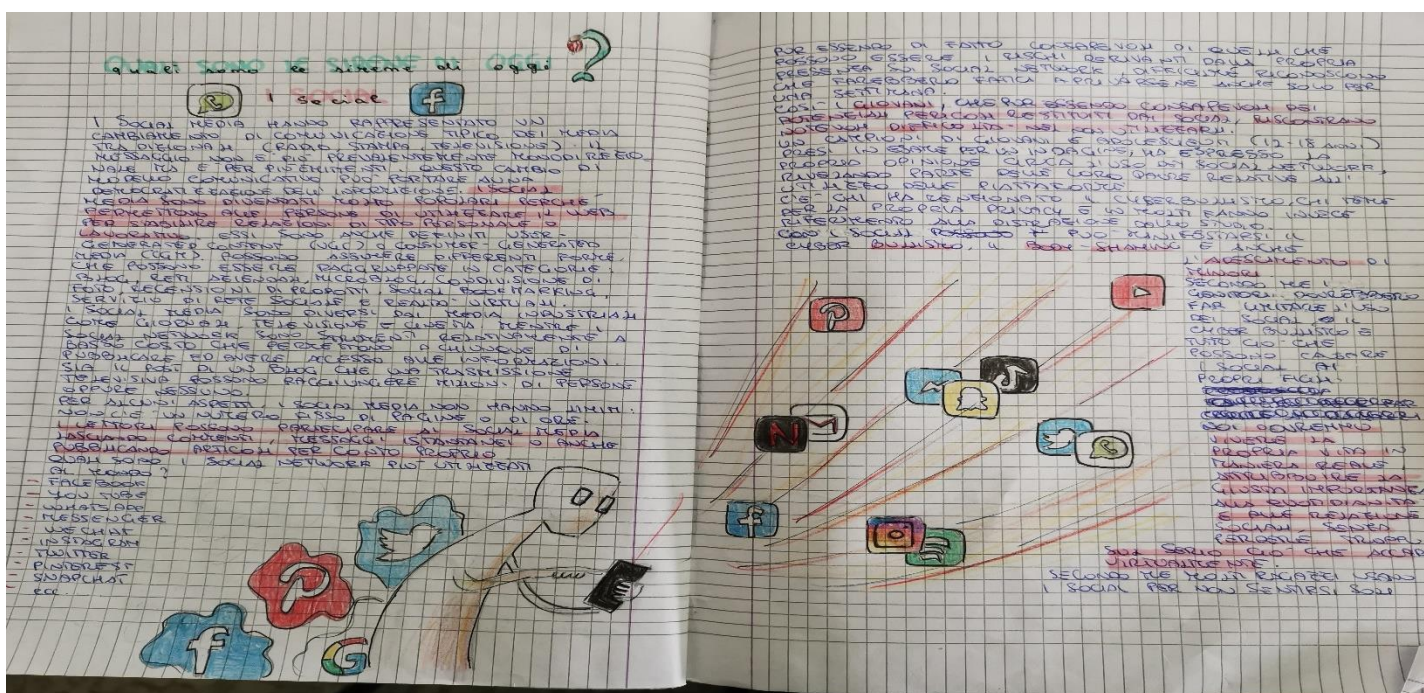 QUALI SONO LE SIRENE DI OGGI?
I SOCIAL
I SOCIAL MEDIA HANNO RAPPRESENTATO UN
CAMBIAMENTO DI COMUNICAZIONE TIPICO DEI MEDIA
TRADIZIONALI (RADIO, STAMPA, TELEVISIONE). IL
MESSAGGIO NON È PIÙ PREVALENTEMENTE MONODIREZIO
NALE MA È PER PIÙ UTENTI. QUESTO CAMBIO DI
MODELLO COMUNICATIVO PUÒ PORTARE ALLA
DEMOCRATIZZAZIONE DELL'INFORMAZIONE. I SOCIAL
MEDIA SONO DIVENTATI MOLTO POPOLARI PERCHÉ
PERMETTONO ALLE PERSONE DI UTILIZZARE IL WEB
PER STABILIRE RELAZIONI DI TIPO PERSONALE O
LAVORATIVO. ESSI SONO ANCHE DEFINITI USER-
GENERATED CONTENT (UGC) O CONSUMER-GENERATED
MEDIA (CGM). POSSONO ASSUMERE DIFFERENTI FORME,
CHE POSSONO ESSERE RAGGRUPPATE IN CATEGORIE:
BLOG, RETI AZIENDALI, MICROBLOG, CONDIVISIONE DI
FOTO, RECENSIONI DI PRODOTTI, SOCIAL BOOKMARKING,
SERVIZIO DI RETE SOCIALE E REALTÀ VIRTUALI.
I SOCIAL MEDIA SONO DIVERSI DAI MEDIA INDUSTRIALI
COME GIORNALI, TELEVISIONE E CINEMA MENTRE I
SOCIAL NETWORK SONO STRUMENTI RELATIVAMENTE A
BASSO COSTO CHE PERMETTONO A CHIUNQUE DI
PUBBLICARE ED AVERE ACCESSO ALLE INFORMAZIONI.
SIA IL POST DI UN BLOG CHE UNA TRASMISSIONE
TELEVISIVA POSSONO RAGGIUNGERE MILIONI DI PERSONE
OPPURE NESSUNO.
PER ALCUNI ASPETTI I SOCIAL MEDIA NON HANNO LIMITI:
NON C'È UN NUMERO FISSO DI PAGINE O DI ORE.
I LETTORI POSSONO PARTECIPARE AI SOCIAL MEDIA
LASCIANDO COMMENTI, MESSAGGI ISTANTANEI O ANCHE
PUBBLICANDO ARTICOLI PER CONTO PROPRIO
QUALI SONO I SOCIAL NETWORK PIÙ UTILIZZATI
AL MONDO?
- FACEBOOK
- YOU TUBE
- WHATSAPP
- MESSENGER
- WECHAT
- INSTAGRAM
- TWITTER
- PINTEREST
- SNAPCHAT
ecc...
PUR ESSENDO DI FATTO CONSAPEVOLI DI QUELLI CHE
POSSONO ESSERE I RISCHI DERIVANTI DALLA PROPRIA
PRESENZA SUI SOCIAL NETWORK RICONOSCONO
CHE FAREBBERO FATICA A ANCHE SOLO PER
UNA SETTIMANA.
COSÌ I GIOVANI, CHE PUR ESSENDO CONSAPEVOLI DEI
POTENZIALI PERICOLI RESTITUITI DAI SOCIAL, RISCONTRANO
NOTEVOLI DIFFICOLTÀ NEL NON UTILIZZARLI.
UN CAMPIONE DI GIOVANI E ADOLESCENTI (12-18 ANNI)
PRESI IN ESAME PER UN'INDAGINE, HA ESPRESSO LA
PROPRIA OPINIONE CIRCA L'USO DEI SOCIAL NETWORK,
RIVELANDO PARTE DELLE LORO PAURE RELATIVE ALL'
UTILIZZO DELLE PIATTAFORME.
C'È CHI HA MENZIONATO IL CYBERBULLISMO, CHI TEME
PER LA PROPRIA PRIVACY E IN MOLTI FANNO INVECE
RIFERIMENTO ALLA DELLO STUDIO.
CON I SOCIAL PUÒ MANIFESTARSI IL
CYBER BULLISMO, IL BODY-SHAMING E ANCHE
L'ADESCAMENTO DI
MINORI
SECONDO ME I
GENITORI DOVREBBERO
FAR LIMITARE L'USO
DEI SOCIAL
CYBER BULLISMO E
TUTTO CIÒ CHE
POSSONO CAUSARE
I SOCIAL AI
PROPRI FIGLI.
NOI DOVREMMO
VIVERE LA
PROPRIA VITA IN
MANIERA REALE,
ATTRIBUIRE LA
GIUSTA IMPORTANZA
ALLA QUOTIDIANITÀ
E ALLE RELAZIONI
SOCIALI SENZA
PERDERE TROPPO
SUL SERIO CIÒ CHE ACCADE
VIRTUALMENTE.
SECONDO ME MOLTI RAGAZZI USANO
I SOCIAL PER NON SENTIRSI SOLI